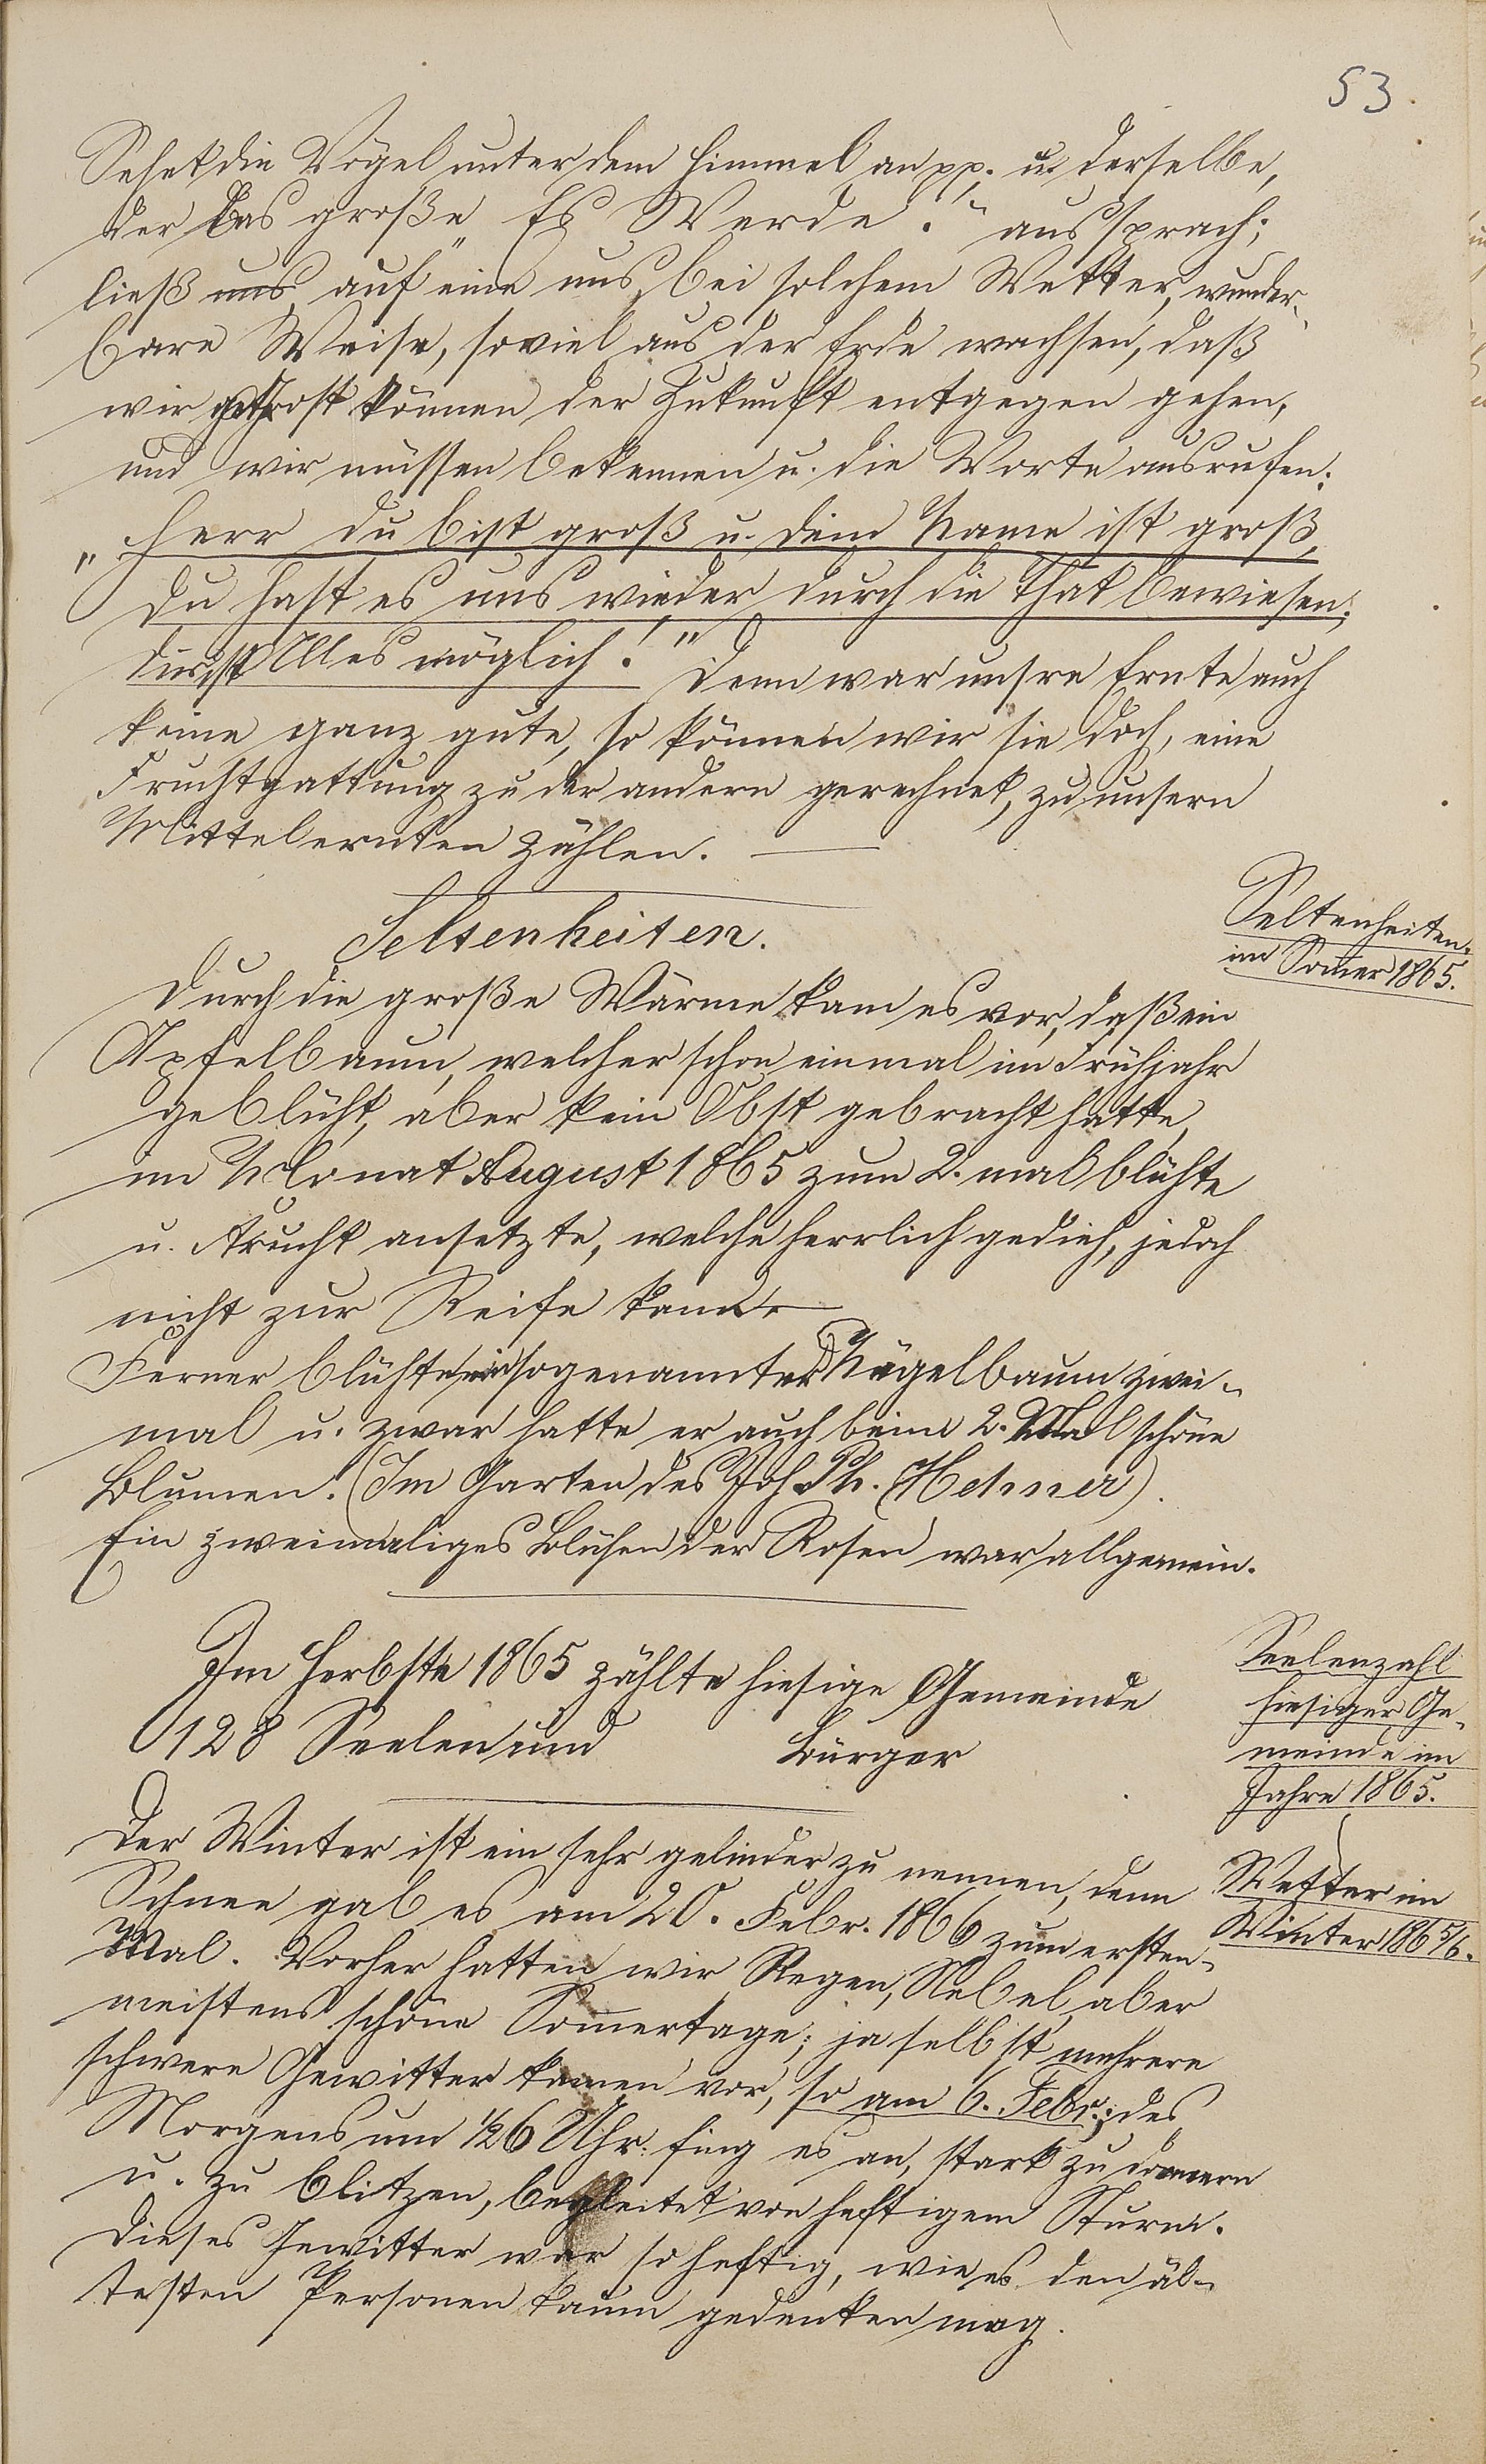 53.
Sehet die Vögel unter dem Himmel an pp. u. derselbe,
der das große „Es Werde!“ aussprach;
ließ uns auf eine uns, bei solchem Wetter, wunder-
bare Weise, soviel aus der Erde wachsen, daß
wir getrost können der Zukunft entgegen gehen,
und wir müssen bekennen u. die Worte ausrufen:
„Herr du bist groß u. dein Name ist groß,
Du hast es uns wieder durch die That bewiesen;
dir ist Alles möglich!“ Denn war unsre Ernte auch
keine ganz gute, so können wir sie doch, eine
Fruchtgattung zu der andern gerechnet, zu unsern
Mittelernten zählen.
Seltenheiten.
Seltenheiten
im Som̄er 1865.
Durch die große Wärme kam es vor, daß ein
Apfelbaum, welcher schon einmal im Frühjahr
geblüht, aber kein Obst gebracht hatte,
im Monat August 1865 zum 2. mal blühte
u. Frucht ansetzte, welche herrlich gedieh, jedoch
nicht zur Reife kam.
Ferner blühte ein sogenannter Nägelbaum zwei-
mal u. zwar hatte er auch beim 2. Mal schöne
Blumen. (Im Garten des Joh. Ph. Hehner).
Ein zweimaliges Blühen der Rosen war allgemein.
Im Herbste 1865 zählte hiesige Gemeinde
128 Seelen und Bürger
Seelenzahl
hiesiger Ge-
meinde im
Jahre 1865.
Der Winter ist ein sehr gelinder zu nennen, denn
Schnee gab es am 20. Febr. 1866 zum ersten-
Mal. Vorher hatten wir Regen, Nebel, aber
meistens schöne Som̄ertage; ja selbst mehrere
schwere Gewitter kamen vor, so am 6. Febr.; des
Morgens um ½6 Uhr fing es an, stark zu donnern
u. zu blitzen, begleitet von heftigem Sturm.
Dieses Gewitter war so heftig, wie es den äl-
testen Personen kaum gedenken mag.
Wetter im
Winter 186 5/6.